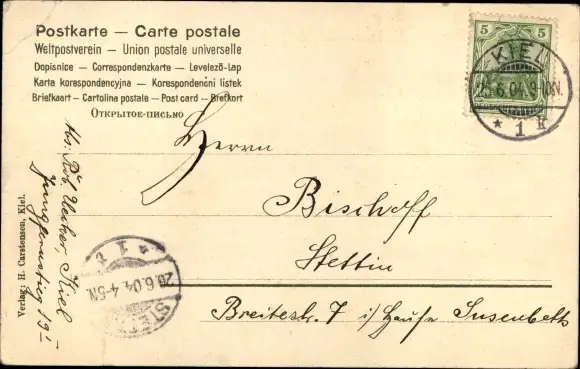 Postkarte — Carte postale
Weltpostverein — Union postale universelle
Dopisnice — Correspondenzkarte — Levelező-Lap
Karta korespondencyjna — Korespondenční lístek
Briefkaart — Cartolina postale — Post card — Brefkort
ОТКРЫТОЕ-ПИСЬМО
5 5
KIEL
6.04. 9-10N.
* 1 k
Herrn
Bischoff
Stettin
Breitestr. 7 i/ Hause
Abs: Rob. Kiel
Jungfernstieg 19 I
Verlag: H. Carstensen, Kiel.
* 1 t
20.6.04. 4-5N.
STETTIN